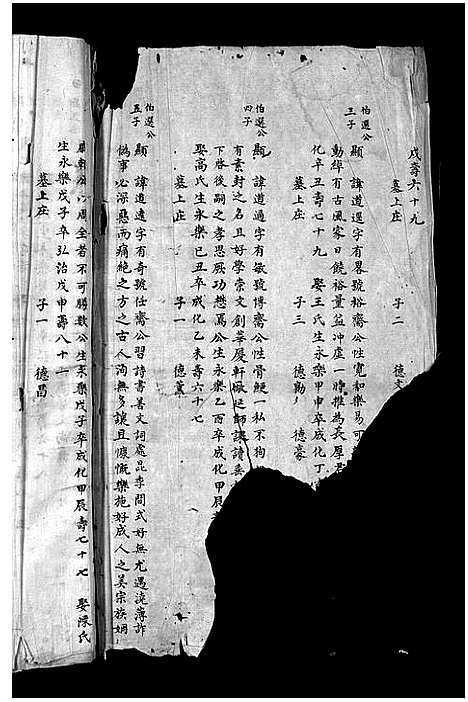 戌壽六十九
墓上庄 子二 德文
伯選公三子
顯 諱道選字有畧號裕齋公性寬和樂易可
動綽有古風家日饒裕量益冲虛一時推為長厚君
化辛丑壽七十九 娶王氏生永樂甲申卒成化丁
墓上庄 子三 德勤 德豪
伯選公四子
顯 諱道通字有敏號博齋公性骨鯁一私不狗
有素封之名且好學崇文創莘廈軒敞延師課讀
下啓後嗣之孝思厥功懋焉公生永樂乙酉卒成化甲辰
娶高氏生永樂己丑卒成化乙未壽六十七
墓上庄 子一 德薰
伯選公五子
顯 諱道遠字有奇號任齋公習詩書善文詞處昆季間式好無尤遇澆薄詐
偽事必深惡而痛絕之方之古人洵無多讓且慷慨樂施好成人之美宗族姻
以周全者不可勝數公生永樂戊子卒成化甲辰壽七十七 娶陳氏
生永樂戊子卒弘治戊申壽八十一
墓上庄 子一 德昌